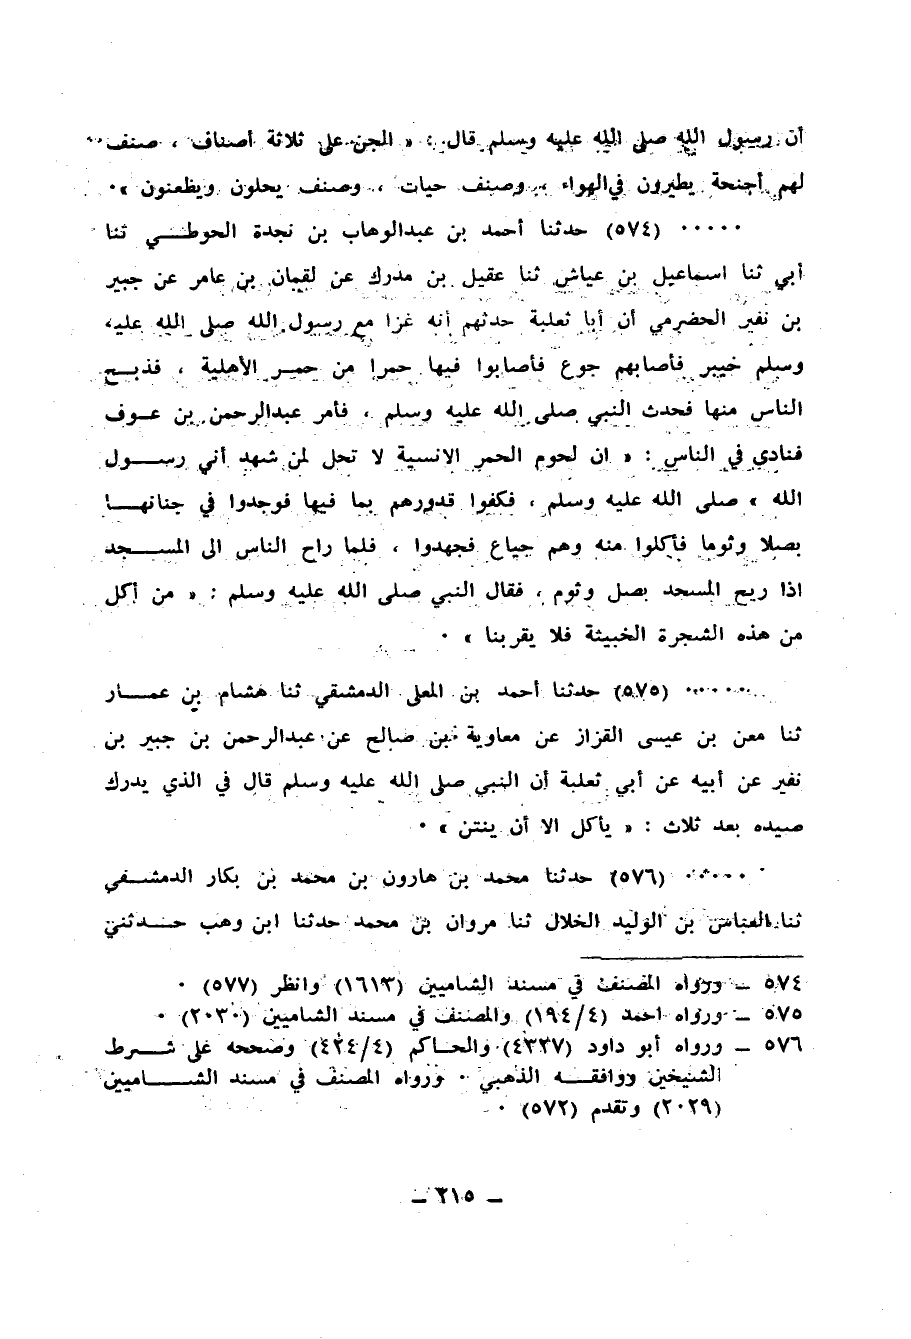 أن رسول الله صلى الله عليه وسلم قال : « الجن على ثلاثة أصناف ، صنف
لهم أجنحة يطيرون في الهواء ، وصنف حيات ، وصنف يحلون ويظعنون » ٠
٠٠٠٠٠ (٥٧٤) حدثنا أحمد بن عبدالوهاب بن نجدة الحوطـــي ثنا
أبي ثنا اسماعيل بن عياش ثنا عقيل بن مدرك عن لقمان بن عامر عن جبير
بن نفير الحضرمي أن أبا ثعلبة حدثهم أنه غزا مع رسول الله صلى الله عليه
وسلم خيبر فأصابهم جوع فأصابوا فيها حمرا من حمـر الأهلية ، فذبـح
الناس منها فحدث النبي صلى الله عليه وسلم ، فأمر عبدالرحمن بن عـوف
فنادى في الناس : « ان لحوم الحمر الانسية لا تحل لمن شهد أني رســول
الله » صلى الله عليه وسلم ، فكفوا قدورهم بما فيها فوجدوا في جنانهـــا
بصلا وثوما فأكلوا منه وهم جياع فجهدوا ، فلما راح الناس الى المســـجد
اذا ريح المسجد بصل وثوم ، فقال النبي صلى الله عليه وسلم : « من أكل
من هذه الشجرة الخبيثة فلا يقربنا » ٠
٠٠٠٠٠ (٥٧٥) حدثنا أحمد بن المعلى الدمشقي ثنا هشام بن عمـــار
ثنا معن بن عيسى القزاز عن معاوية بن صالح عن عبدالرحمن بن جبير بن
نفير عن أبيه عن أبي ثعلبة أن النبي صلى الله عليه وسلم قال في الذي يدرك
صيده بعد ثلاث : « يأكل الا أن ينتن » ٠
٠٠٠٠٠ (٥٧٦) حدثنا محمد بن هارون بن محمد بن بكار الدمشـــقي
ثنا العباس بن الوليد الخلال ثنا مروان بن محمد حدثنا ابن وهب حـــدثني
٥٧٤ ــ ورواه المصنف في مسند الشاميين (١٦١٣) وانظر (٥٧٧) ٠
٥٧٥ ــ ورواه احمد (١٩٤/٤) والمصنف في مسند الشاميين (٢٠٣٠) ٠
٥٧٦ ــ ورواه أبو داود (٤٣٣٧) والحـاكم (٤٢٤/٤) وصححه على شـــرط
الشيخين ووافقـــه الذهبي ٠ ورواه المصنف في مسند الشـــاميين
(٢٠٢٩) وتقدم (٥٧٢) ٠
ــ ٢١٥ ــ